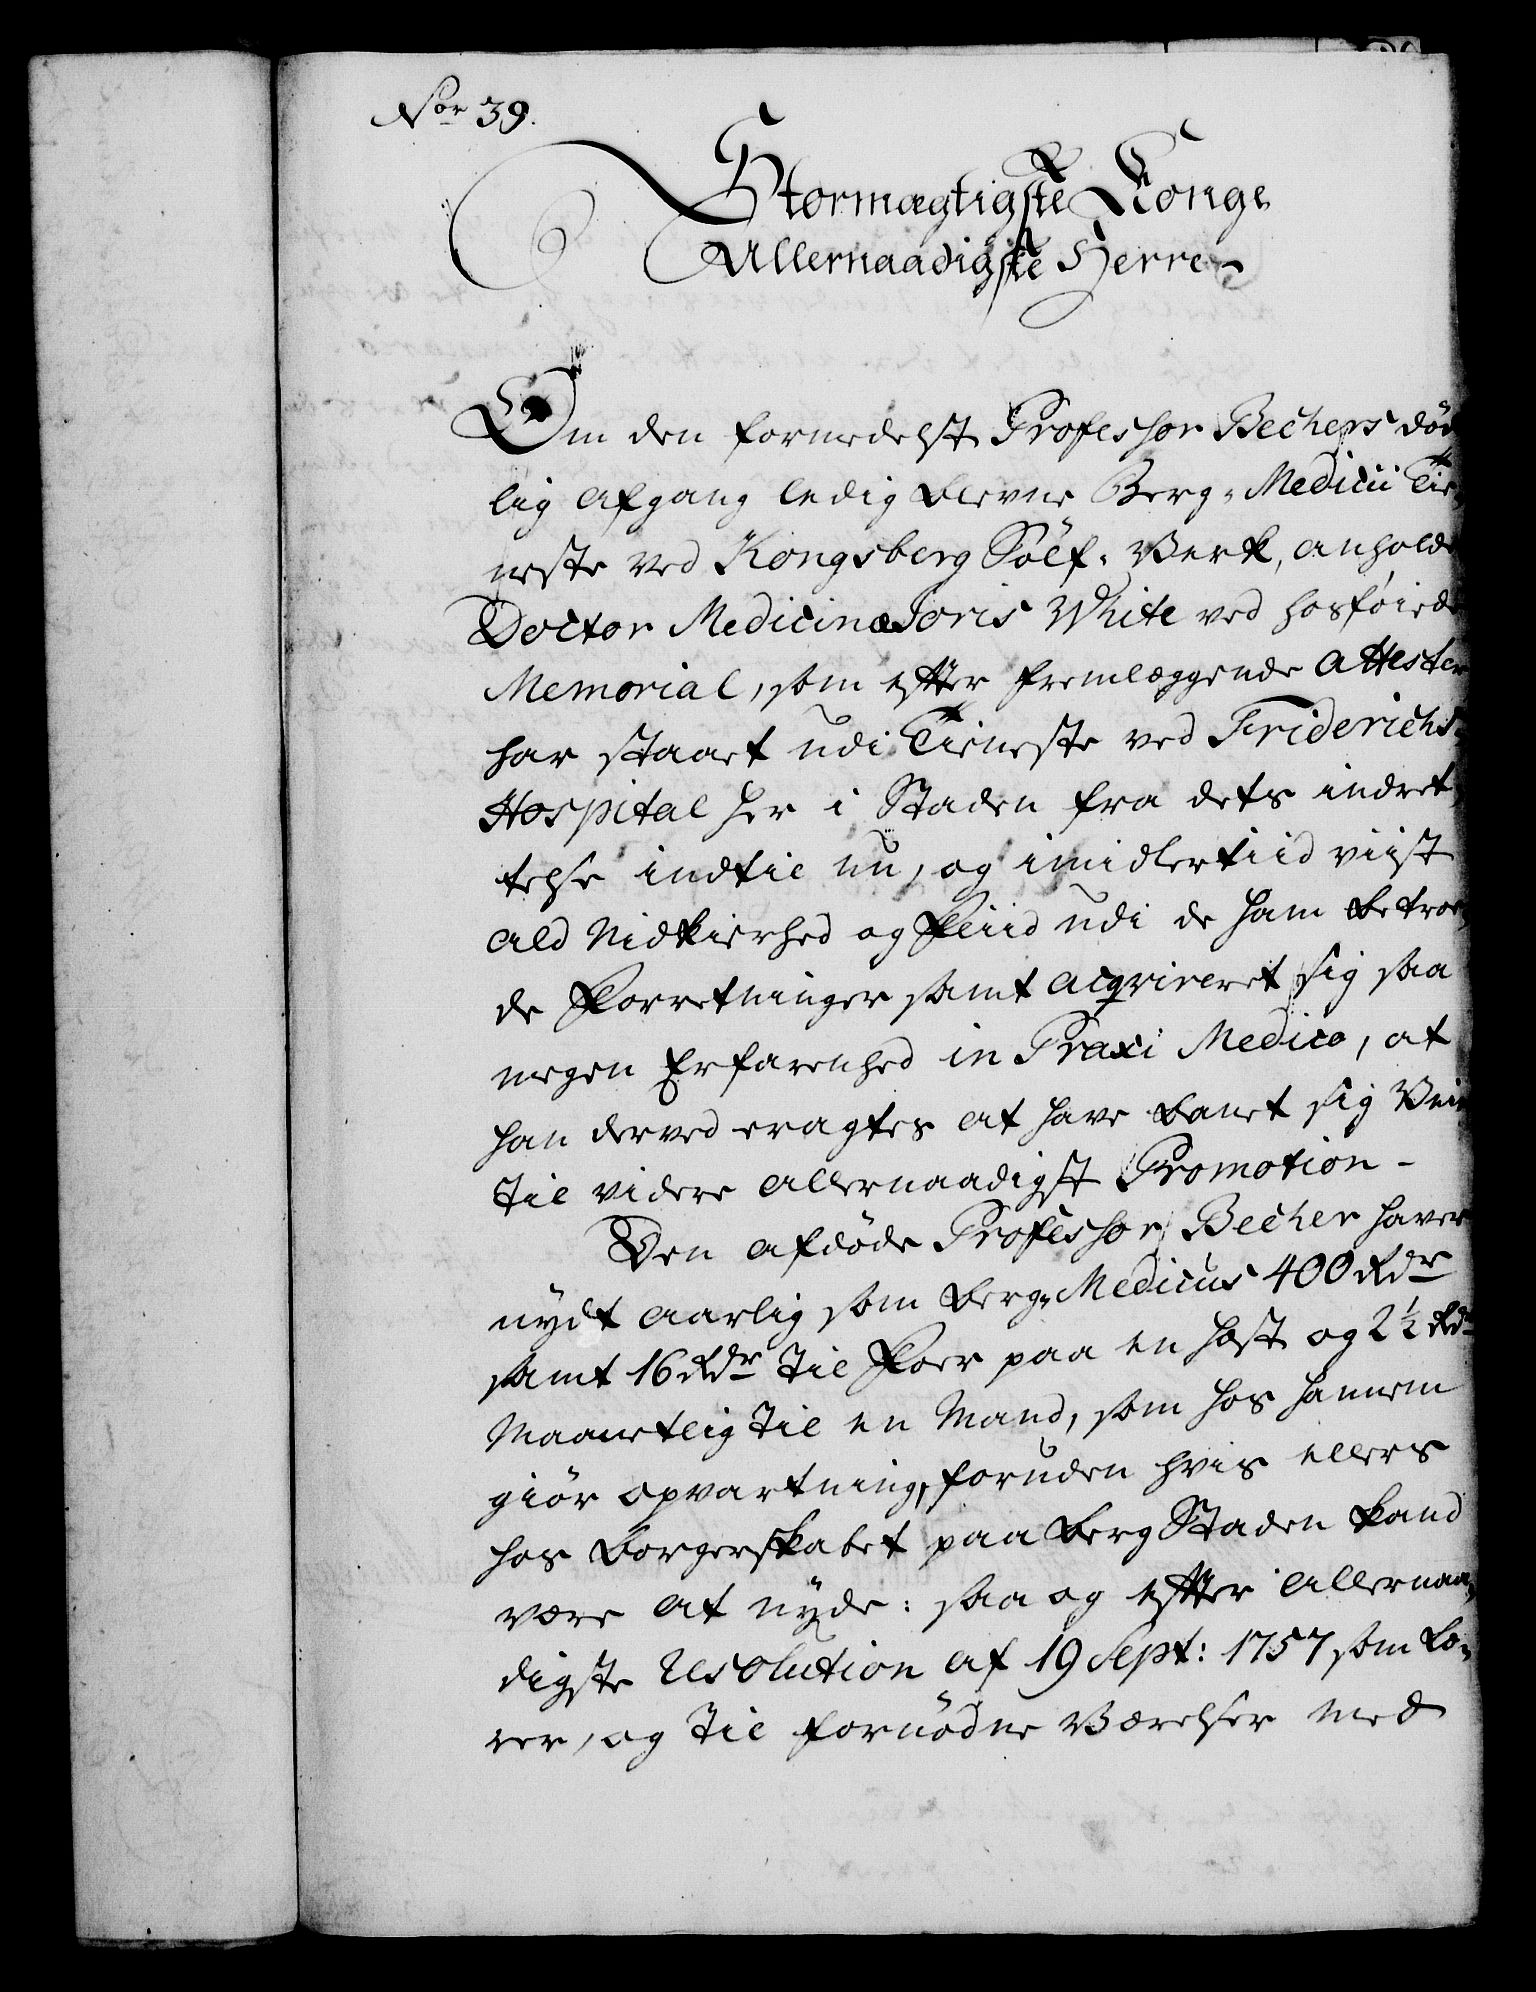 No̲r̲ 39.
Stormægtigste Konge
Allernaadigste Herre
Om den formedelst Professor Bechers død
lig afgang ledig blevne Berg- Medicii Tie-
neste ved Kongsberg Sölf- Werk, anholder
Doctor Medicinæ Joris White ved hosføiede
Memorial, som efter fremlæggende Attester
har staaet udi Tieneste ved Friderichs-
Hospital her i Staden fra dets indret-
telse indtil nu, og imidlertiid viist
ald Nidkierhed og Fliid udi de ham betroe-
de Forretninger samt acqvireret sig saa
megen Erfarenhed in Praxi Medico, at
han derved eragtes at have banet sig Vei
til videre allernaadigst Promotion -
Den afdøde Professor Becher haver
nydt aarlig som Berg-Medicus 400 Rdr
samt 16 Rdr til Foer paa en Hæst og 2½ Rdr
Maanetlig til en Mand, som hos hannem
giör opvartning, foruden hvis ellers
hos Borgerskabet paa Berg Staden kand
være at nyde: saa og efter allernaa-
digste Resolution af 19 Sept: 1757 som Læ-
rer, og til fornødne Værelser med